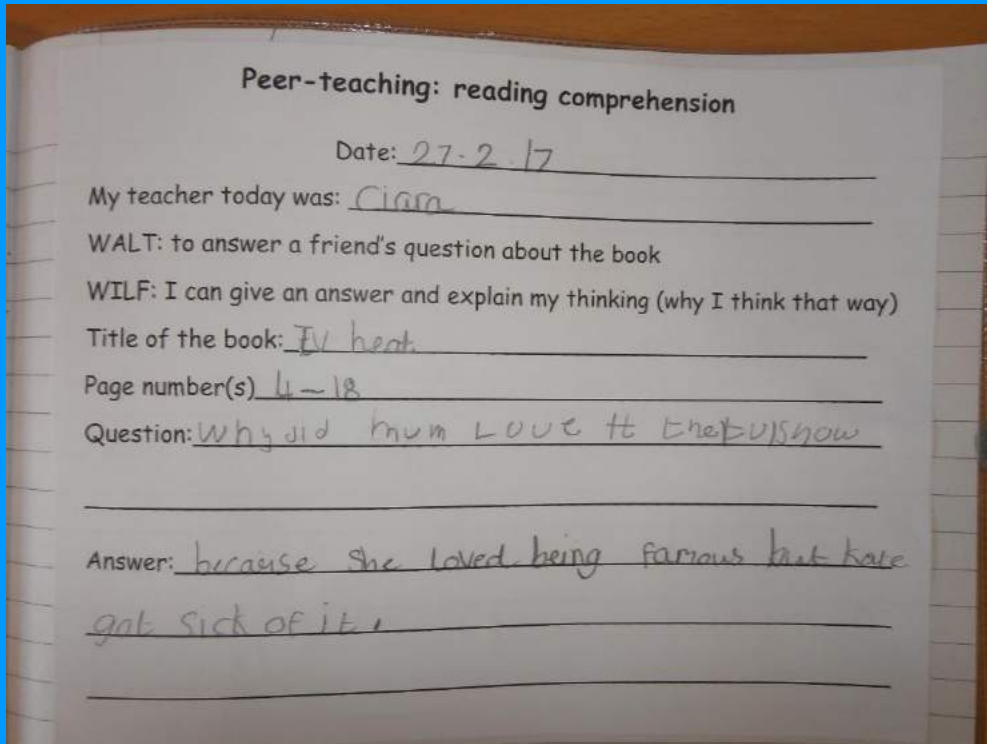 Peer-teaching: reading comprehension
Date: 27.2.17
My teacher today was: Ciara
WALT: to answer a friend's question about the book
WILF: I can give an answer and explain my thinking (why I think that way)
Title of the book:
Page number(s) 4-18
Question: Why did mum Love the tv show
Answer: because She loved being famous but kate
got sick of it.